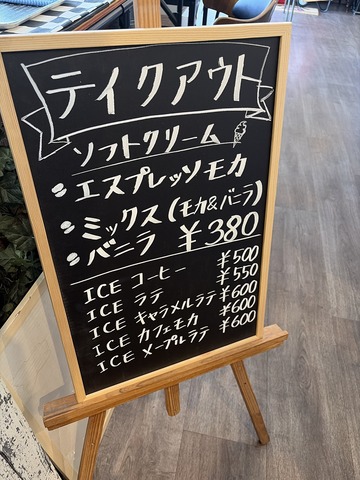 テイクアウト
ソフトクリーム
エスプレッソモカ
ミックス(モカ&バニラ)
バニラ ¥380
ICE コーヒー ¥500
ICE ラテ ¥550
ICE キャラメルラテ ¥600
ICE カフェモカ ¥600
ICE メープルラテ ¥600